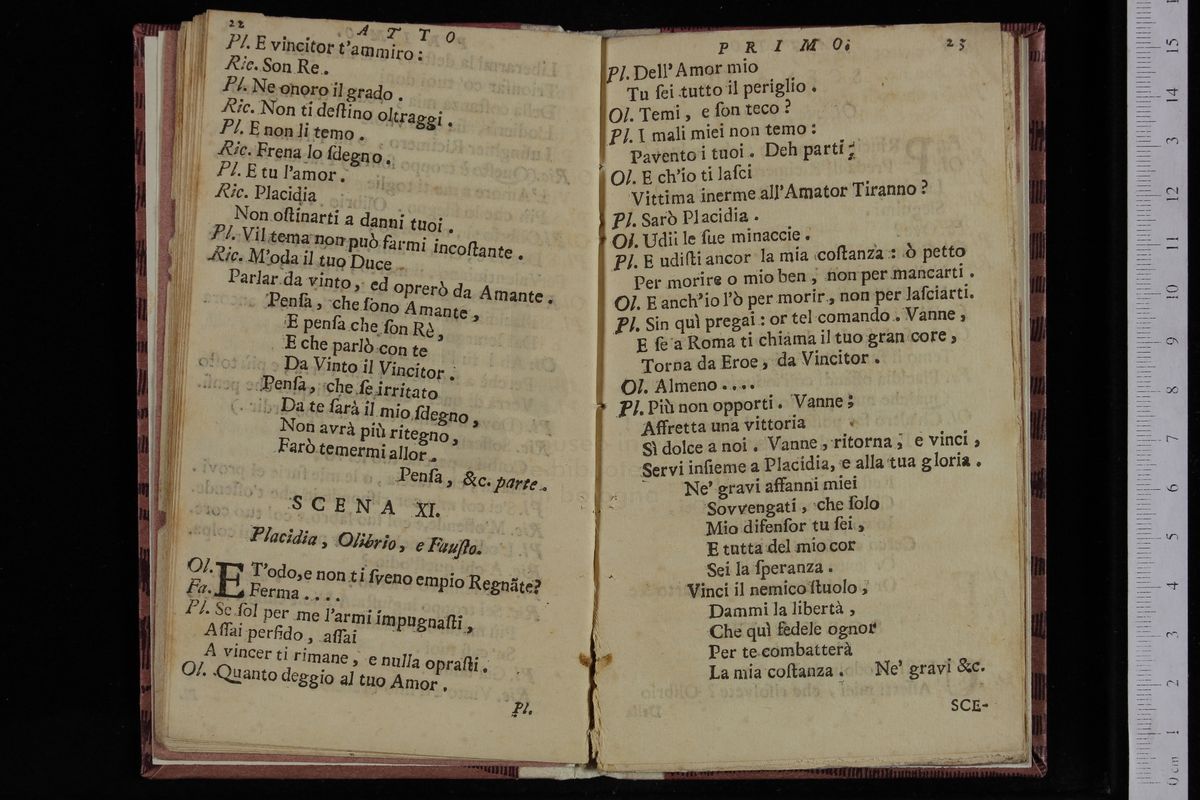 22
ATTO
Pl. E vincitor t'ammiro:
Ric. Son Re.
Pl. Ne onoro il grado.
Ric. Non ti deſtino oltraggi.
Pl. E non li temo.
Ric. Frena lo ſdegno.
Pl. E tu l'amor.
Ric. Placidia
Non oſtinarti a danni tuoi.
Pl. Vil tema non può farmi incoſtante.
Ric. M'oda il tuo Duce
Parlar da vinto, ed oprerò da Amante.
Penſa, che ſono Amante,
E penſa che ſon Rè,
E che parlò con te
Da Vinto il Vincitor.
Penſa, che ſe irritato
Da te ſarà il mio ſdegno,
Non avrà più ritegno,
Farò temermi allor.
Penſa, &c. parte.
SCENA XI.
Placidia, Olibrio, e Fauſto.
Ol. ET'odo, e non ti ſveno empio Regnãte?
Fa. Ferma....
Pl. Se ſol per me l'armi impugnaſti,
Aſſai perfido, aſſai
A vincer ti rimane, e nulla opraſti.
Ol. Quanto deggio al tuo Amor.
Pl.
PRIMO.
23
Pl. Dell'Amor mio
Tu ſei tutto il periglio.
Ol. Temi, e ſon teco?
Pl. I mali miei non temo:
Pavento i tuoi. Deh parti;
Ol. E ch'io ti laſci
Vittima inerme all'Amator Tiranno?
Pl. Sarò Placidia.
Ol. Udii le ſue minaccie.
Pl. E udiſti ancor la mia coſtanza: ò petto
Per morire o mio ben, non per mancarti.
Ol. E anch'io l'ò per morir, non per laſciarti.
Pl. Sin quì pregai: or tel comando. Vanne,
E ſe a Roma ti chiama il tuo gran core,
Torna da Eroe, da Vincitor.
Ol. Almeno....
Pl. Più non opporti. Vanne;
Affretta una vittoria
Sì dolce a noi. Vanne, ritorna, e vinci,
Servi inſieme a Placidia, e alla tua gloria.
Ne' gravi affanni miei
Sovvengati, che ſolo
Mio difenſor tu ſei,
E tutta del mio cor
Sei la ſperanza.
Vinci il nemico ſtuolo,
Dammi la libertà,
Che quì fedele ognor
Per te combatterà
La mia coſtanza. Ne' gravi &c.
SCE-